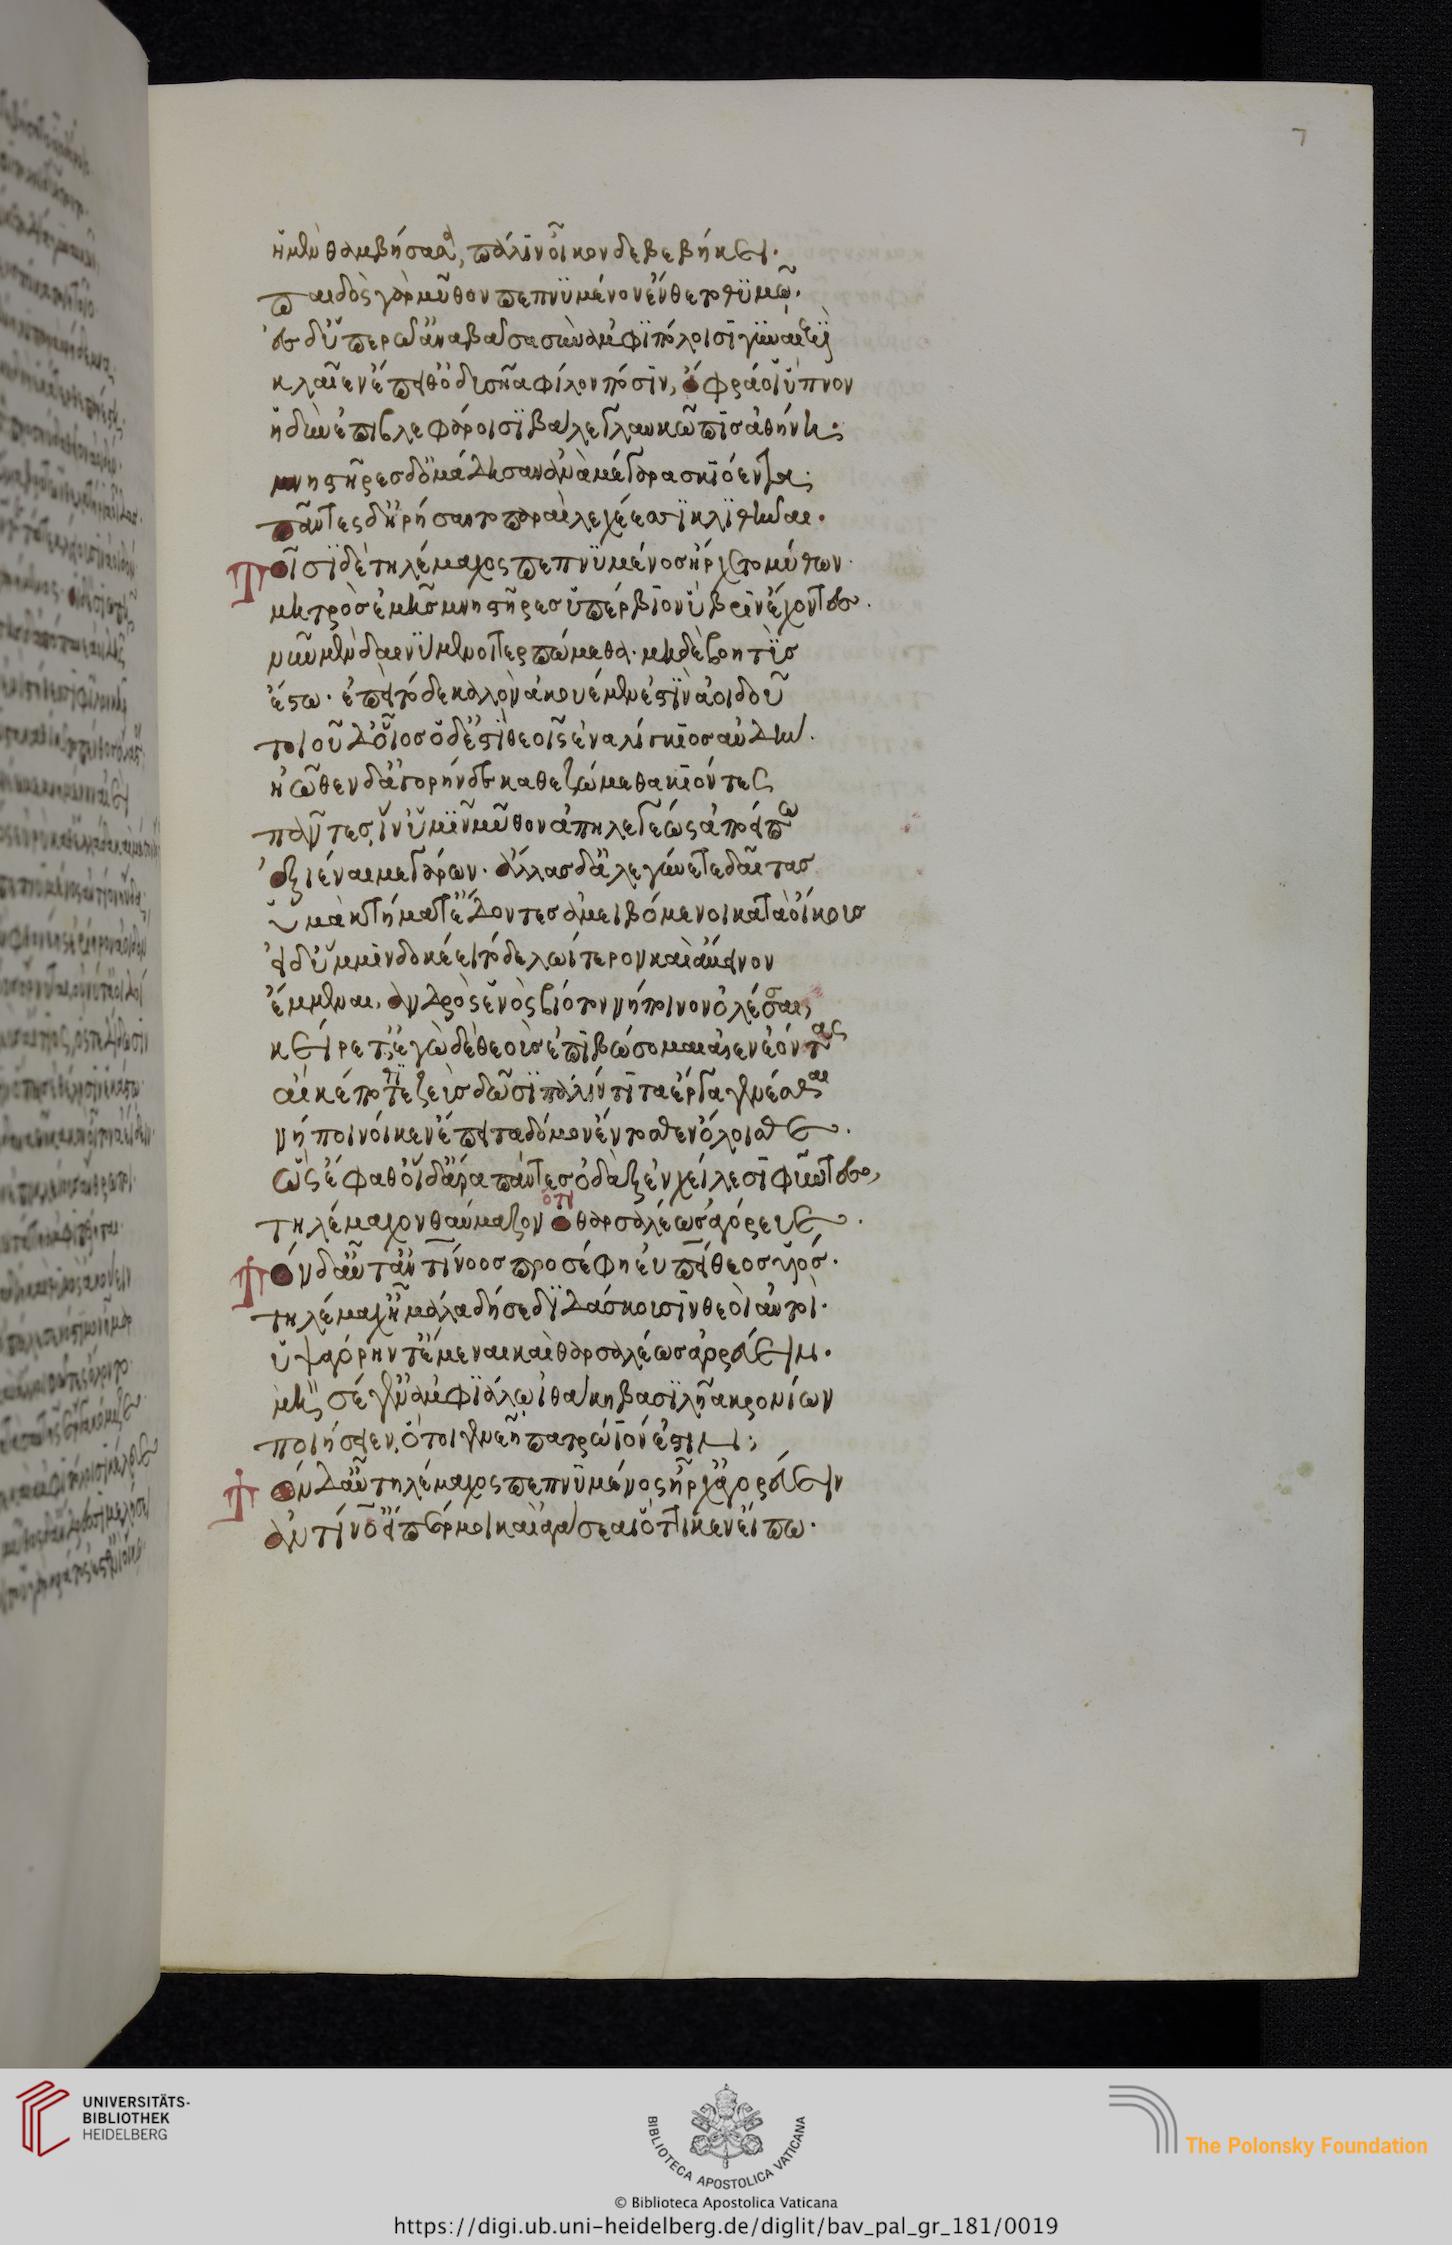 7
ἡ μὲν θαμβήσασα, πάλιν οἶκον δὲ βεβήκει·
παιδὸς γὰρ μῦθον πεπνυμένον ἔνθετο θυμῷ·
ἐς δ' ὑπερῷ' ἀναβᾶσα σὺν ἀμφιπόλοισι γυναιξὶ
κλαῖεν ἔπειθ' ὀδυσῆα φίλον πόσιν, ὄφρά οἱ ὕπνον
ἡδὺν ἐπὶ βλεφάροισι βάλε γλαυκῶπις ἀθήνη·
μνηστῆρες δ' ὁμάδησαν ἀνὰ μέγαρα σκιόεντα·
πάντες δ' ἠρήσαντο παραὶ λεχέεσσι κλιθῆναι·
Τοῖσι δὲ τηλέμαχος πεπνυμένος ἤρχετο μύθων·
μητρὸς ἐμῆς μνηστῆρες ὑπέρβιον ὕβριν ἔχοντες·
νῦν μὲν δαινύμενοι τερπώμεθα· μηδὲ βοητὺς
ἔστω· ἐπεὶ τόδε καλὸν ἀκουέμεν ἐστὶν ἀοιδοῦ
τοιοῦδ' οἷος ὅδ' ἐστὶ θεοῖς ἐναλίγκιος αὐδήν·
ἠῶθεν δ' ἀγορήνδε καθεζώμεθα κιόντες
πάντες, ἵν' ὑμῖν μῦθον ἀπηλεγέως ἀποείπω
ἐξιέναι μεγάρων· ἄλλας δ' ἀλεγύνετε δαῖτας
ὑμὰ κτήματ' ἔδοντες ἀμειβόμενοι κατὰ οἴκους
εἰ δ' ὕμμιν δοκέει τόδε λωίτερον καὶ ἄμεινον
ἔμμεναι, ἀνδρὸς ἑνὸς βίοτον νήποινον ὀλέσθαι,
κείρετ'· ἐγὼ δὲ θεοὺς ἐπιβώσομαι αἰὲν ἐόντας
αἴ κέ ποτι ζεὺς δῶσι παλίντιτα ἔργα γενέσθαι
νήποινοί κεν ἔπειτα δόμων ἔντοσθεν ὄλοισθε·
ὣς ἔφαθ' οἱ δ' ἄρα πάντες ὀδὰξ ἐν χείλεσι φύντες,
τηλέμαχον θαύμαζον ὃ θαρσαλέως ἀγόρευε·
ὅτι
Τὸν δ' αὖτ' ἀντίνοος προσέφη εὐπείθεος υἱός·
τηλέμαχ' ἦ μάλα δή σε διδάσκουσιν θεοὶ αὐτοὶ·
ὑψαγόρην τ' ἔμεναι καὶ θαρσαλέως ἀγορεύειν·
μὴ σέ γ' ἐν ἀμφιάλῳ ἰθάκῃ βασιλῆα κρονίων
ποιήσειεν, ὅ τοι γενεῇ πατρώιόν ἐστιν·
Τὸν δ' αὖ τηλέμαχος πεπνυμένος ἦρχ' ἀγορεύειν
ἀντίνο' εἴπερ μοι καὶ ἀγάσσεαι ὅττί κεν εἴπω·
UNIVERSITÄTS-
BIBLIOTHEK
HEIDELBERG
BIBLIOTECA APOSTOLICA VATICANA
© Biblioteca Apostolica Vaticana
The Polonsky Foundation
https://digi.ub.uni-heidelberg.de/diglit/bav_pal_gr_181/0019